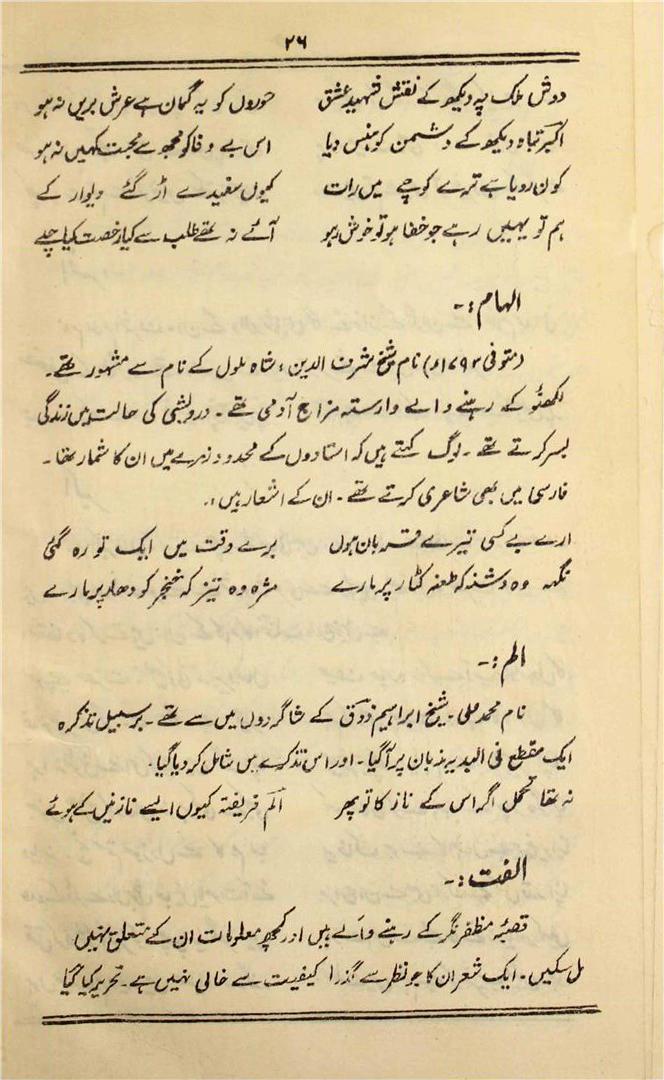 ۲۶
دوش ملک پہ دیکھ کے نقش شہید عشق حوروں کو یہ گمان ہے عرش بریں نہ ہو
اکبر تباہ دیکھ کے دشمن کو ہنس دیا اس بے وفا کو مجھ سے محبت کہیں نہ ہو
کون رویا ہے ترے کوچے میں رات کیوں سفیدے اڑ گئے دیوار کے
ہم تو یہیں رہے جو خفا ہو تو خوش رہو آئے نہ تھے طلب سے کیا رخصت کیا چلے
الہام :-
(متوفی ۱۷۹۲ء) نام شیخ شرف الدین، شاہ ملول کے نام سے مشہور تھے۔
لکھنؤ کے رہنے والے وارستہ مزاج آدمی تھے۔ درویشی کی حالت میں زندگی
بسر کرتے تھے۔ لوگ کہتے ہیں کہ استادوں کے محدود زمرے میں ان کا شمار تھا۔
فارسی میں بھی شاعری کرتے تھے۔ ان کے اشعار ہیں:
ارے بے کسی تیرے قربان ہوں برے وقت میں ایک تو رہ گئی
نگہ وہ دشنہ کہ طعنہ کٹار پر مارے مژہ وہ تیز کہ خنجر کو دھار پر مارے
الم :-
نام محمد علی۔ شیخ ابراہیم ذوقؔ کے شاگردوں میں سے تھے۔ برسبیل تذکرہ
ایک مقطع فی البدیہہ زبان پر آگیا۔ اور اس تذکرے میں شامل کر دیا گیا۔
نہ تھا تحمل اگر اس کے ناز کا تو پھر المؔ فریفتہ کیوں ایسے نازنیں کے ہوئے
الفت :-
قصبۂ مظفر نگر کے رہنے والے ہیں اور کچھ معلومات ان کے متعلق نہیں
مل سکیں۔ ایک شعر ان کا جو نظر سے گذرا کیفیت سے خالی نہیں ہے۔ تحریر کیا گیا